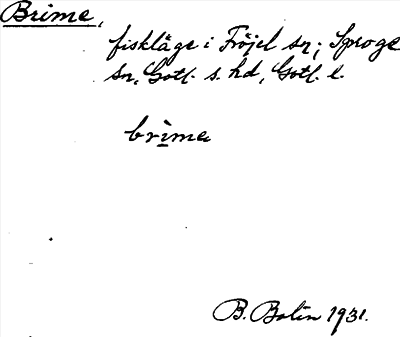 Brime,
fiskläge i Fröjel sn; Sproge
sn, Gotl. s. hd, Gotl. l.
brìma
B. Bolin 1931.